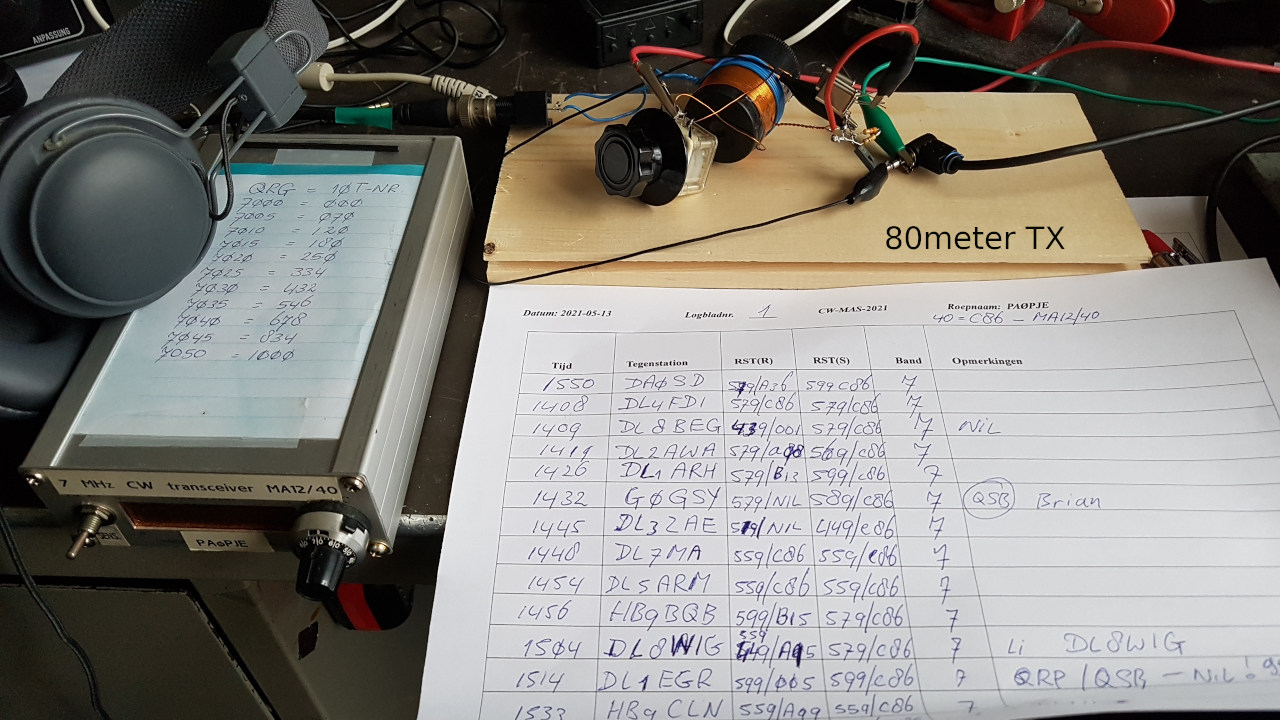 ANPASSUNG
QRG = 10T-NR
7000 = 000
7005 = 070
7010 = 120
7015 = 180
7020 = 250
7025 = 334
7030 = 432
7035 = 546
7040 = 678
7045 = 834
7050 = 1000
7 MHz CW transceiver MA12/40
PAøPJE
80meter TX
Datum: 2021-05-13 Logbladnr. 1 CW-MAS-2021 Roepnaam: PAØPJE
40 = C86 – MA12/40
Tijd Tegenstation RST(R) RST(S) Band Opmerkingen
1550 DAØSD 599/A36 599c86 7
1408 DL4FDI 579/c86 579/c86 7
1409 DL8BEG 439/001 579/c86 7 NiL
1419 DL2AWA 579/a08 569/c86 7
1426 DL1ARH 579/B13 599/c86 7
1432 GØGSY 579/NIL 589/c86 7 QSB Brian
1445 DL3ZAE 579/NIL 449/c86 7
1448 DL7MA 559/C86 559/c86 7
1454 DL5ARM 559/C86 559/c86 7
1456 HB9BQB 599/B15 579/c86 7
559
1504 DL8WIG 449/A95 579/c86 7 Li DL8WIG
1514 DL1EGR 599/005 599/c86 7 QRP / QSB – NiL!
1533 HB9CLN 559/A99 559/c86 7